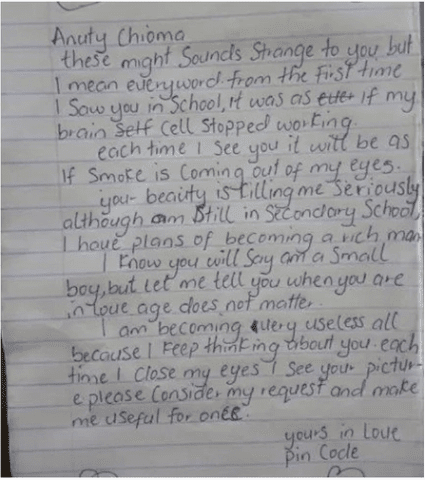 Anuty Chioma
these might Sounds Strange to you but
I mean everyword from the First time
I Saw you in School, it was as if my
brain Self Cell Stopped working.
each time I See you it will be as
If Smoke is Coming out of my eyes.
your beauty is killing me Seriously
although am Still in Secondary School,
I have plans of becoming a rich man
I Know you will Say am a Small
boy, but Let me tell you when you are
in love age does not matter.
I am becoming very useless all
because I Keep thinking about you each
time I Close my eyes I See your pictur-
e please Consider my request and make
me useful for once.
yours in Love
Pin Cocle